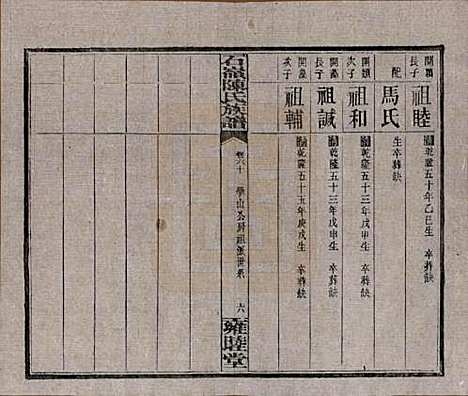 開穎長子 祖睦 乾隆五十年乙巳生 卒葬缺
配 馬氏 生卒葬缺
開穎次子 祖和 乾隆五十三年戊申生 卒葬缺
長子 祖誠 乾隆五十三年戊申生 卒葬缺
次子 祖輔 乾隆五十五年庚戌生 卒葬缺
石嶺陳氏族譜
卷六十 學山公房祖派世系 六
雍睦堂